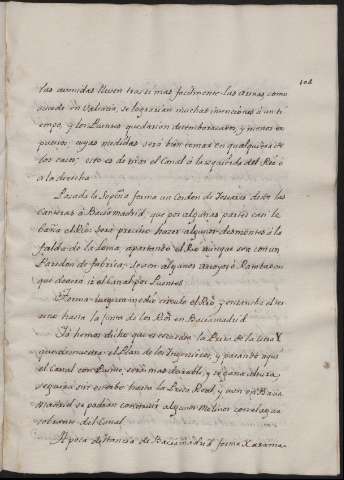 108
las avenidas lleven tras si mas facilmente las arenas, como
sucede en Valencia, se lograrian muchas invenciones à un ti-
empo, y los Puentes quedarian desembarazados, y menos ex-
puestos: cuyas medidas serà bien tomar en qualquiera de
los casos; esto es de ir el Canal à la izquierda del Rio ò
à la derecha.
Pasada la forma un Cordon de desde las
Canteras à Baciamadrid, que por algunas partes casi le
baña el Rio: serà preciso hacer algunos desmontes à la
falda de la loma, apartando el Rio aunque sea con un
Paredon de fabrica: se ven algunos arroyos ò Barrancos
que deverà ir el Canal por Puentes.
forma luego medio circulo el Rio, y
hasta la junta de los Rios en Baciamadrid.
Yà hemos dicho que la Presa de la linea
que demuestra el Plan de los Ingenieros, y parando aqui
el Canal con serà mas durable, y se gana altura,
seguirà sin estorbo hasta la Presa Real, y aun en Bacia
Madrid se podràn construir algunos Molinos con el agua
sobrante del Canal.
A poca distancia de Baciamadrid forma Xarama